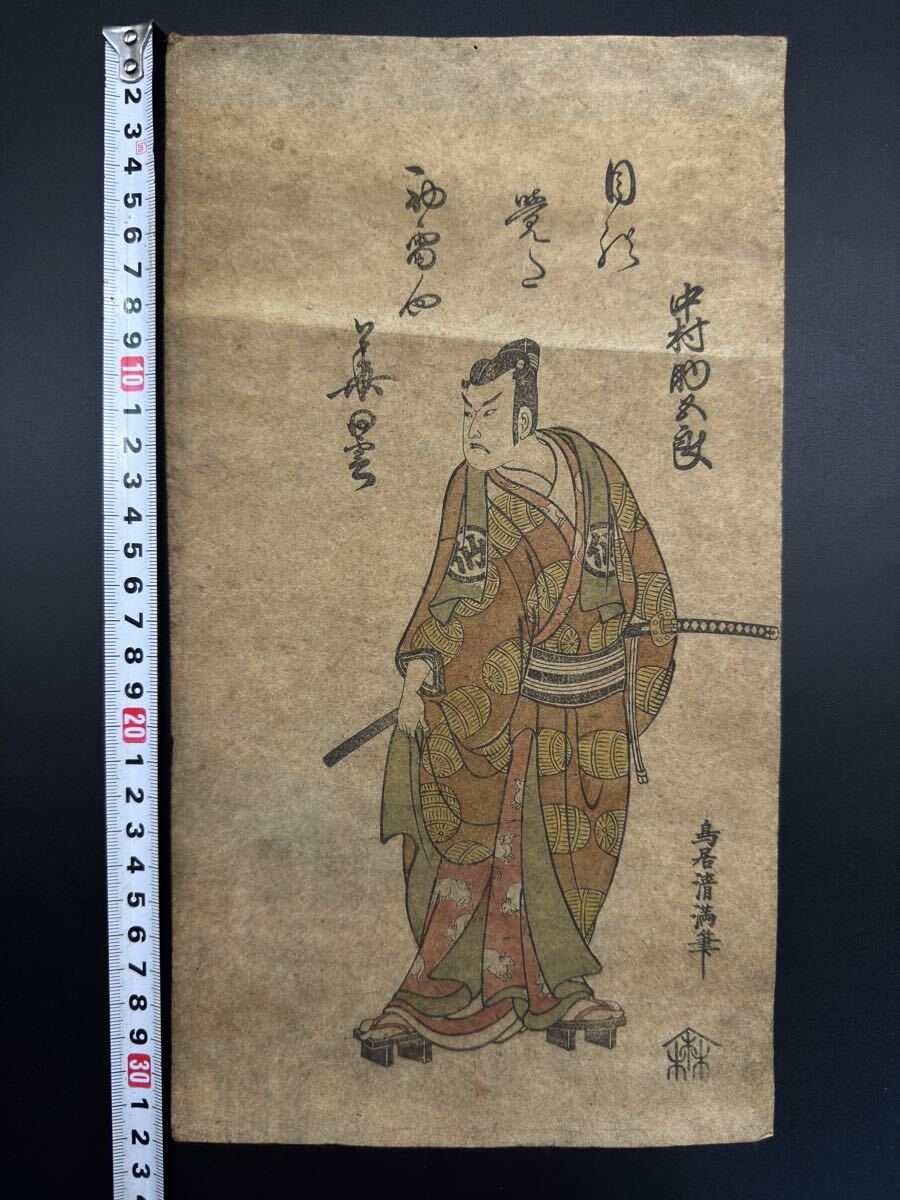 中村助五郎
目能
覚る
初雷や
華曇
仙
鳥居清満筆
2 3 4 5 6 7 8 9 10 1 2 3 4 5 6 7 8 9 20 1 2 3 4 5 6 7 8 9 30 1 2 3
5m